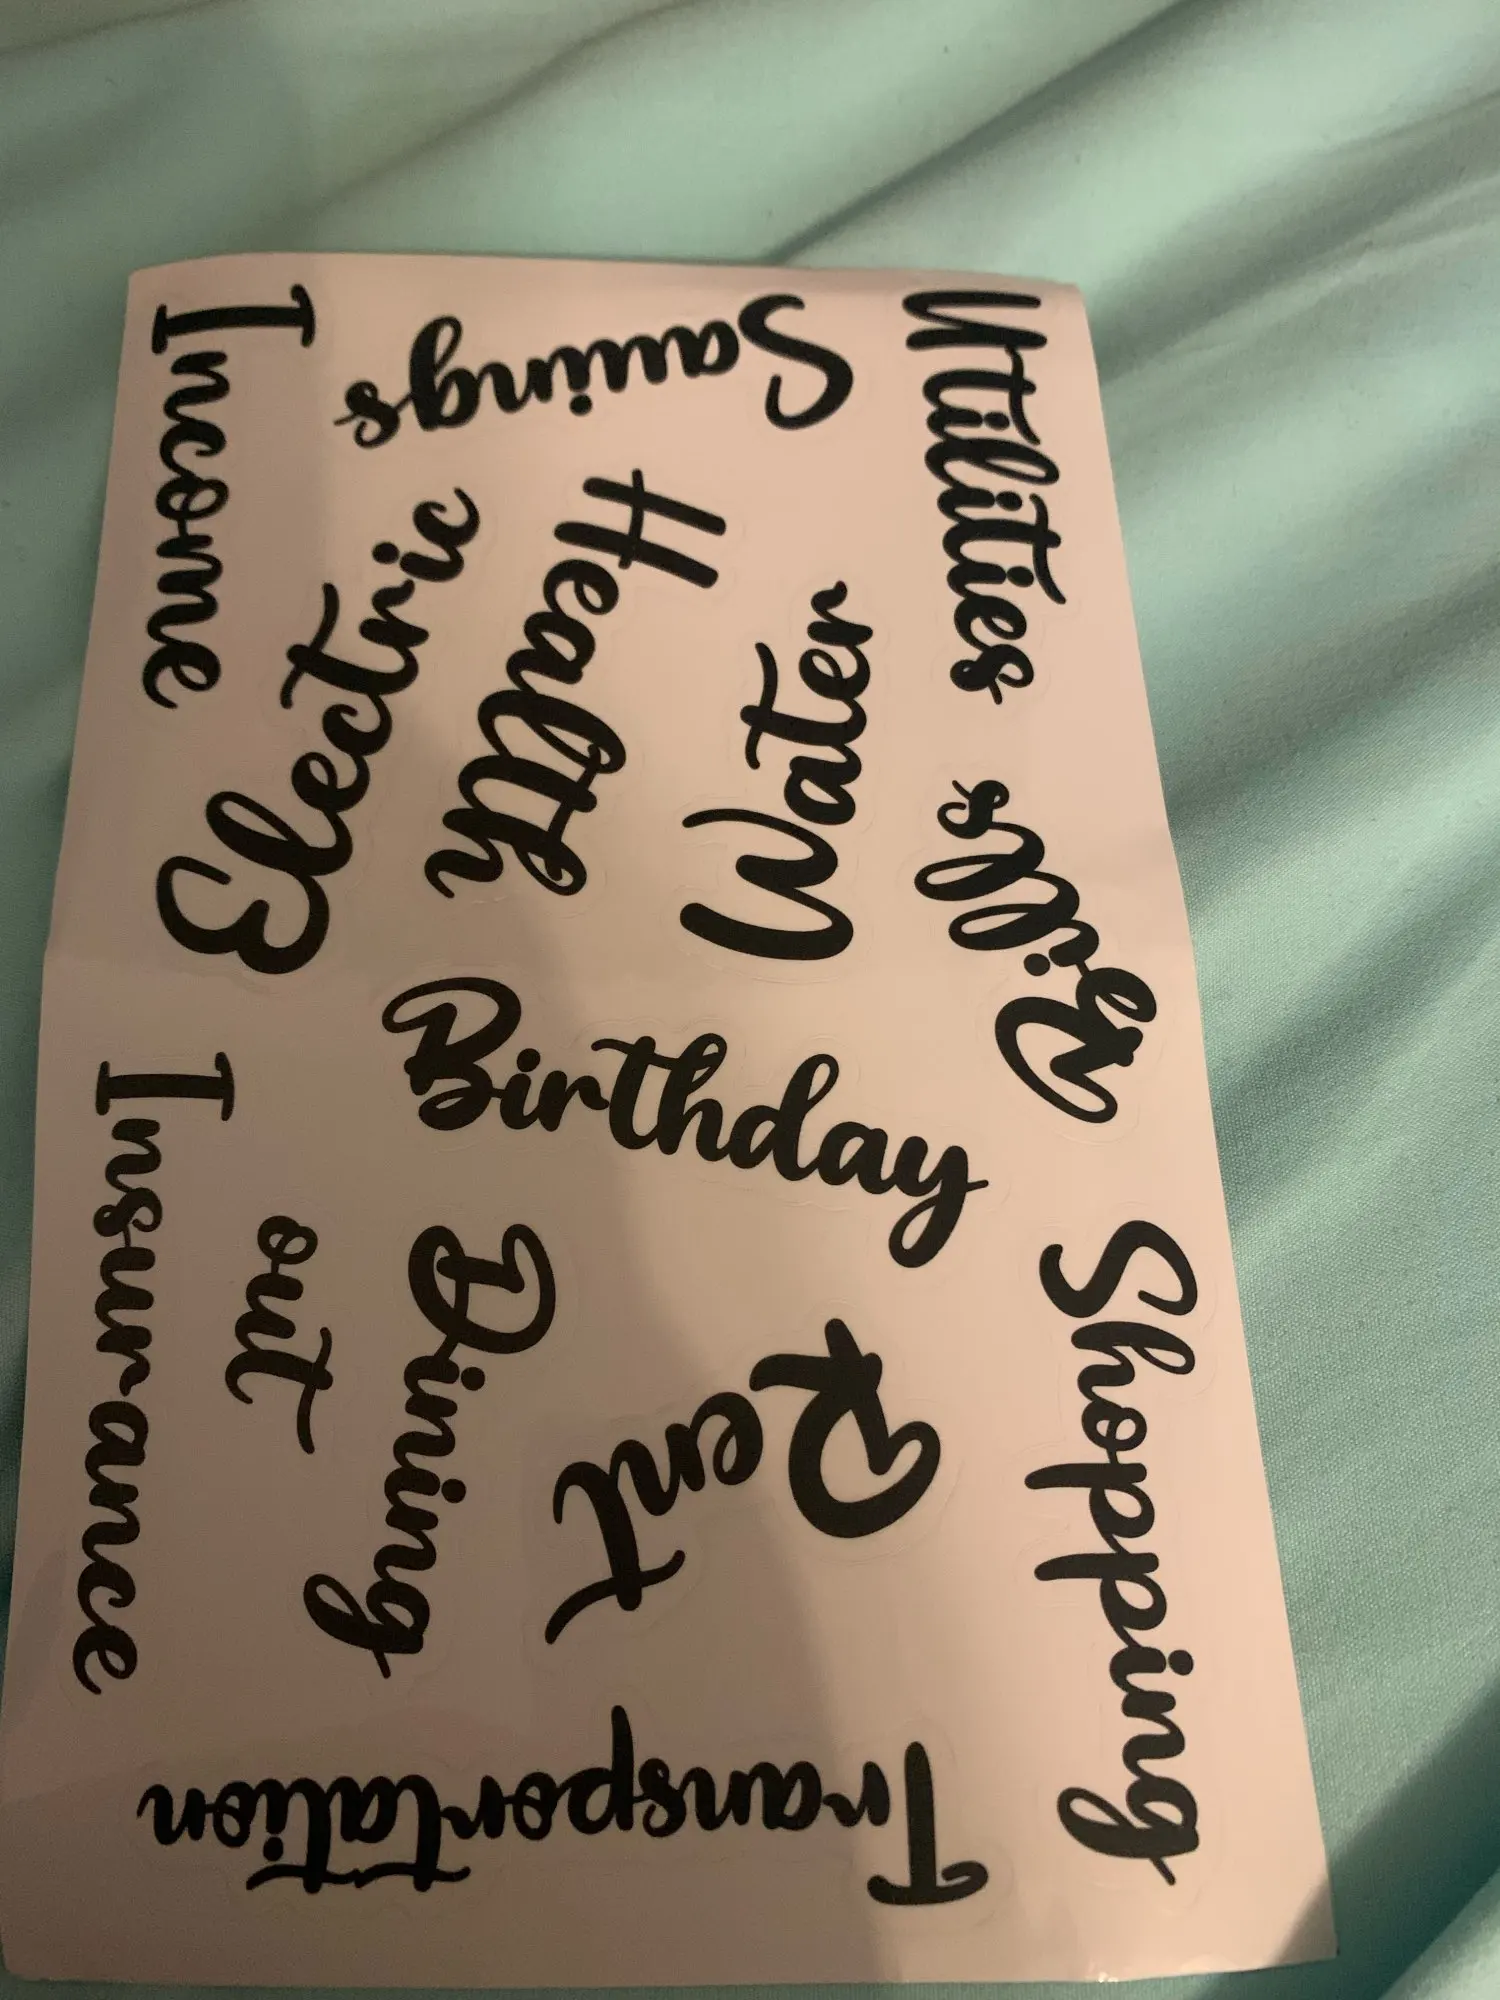 Utilities
Savings
Income
Health
Electric
Water
Bills
Birthday
Shopping
Rent
Dining
out
Insurance
Transportation